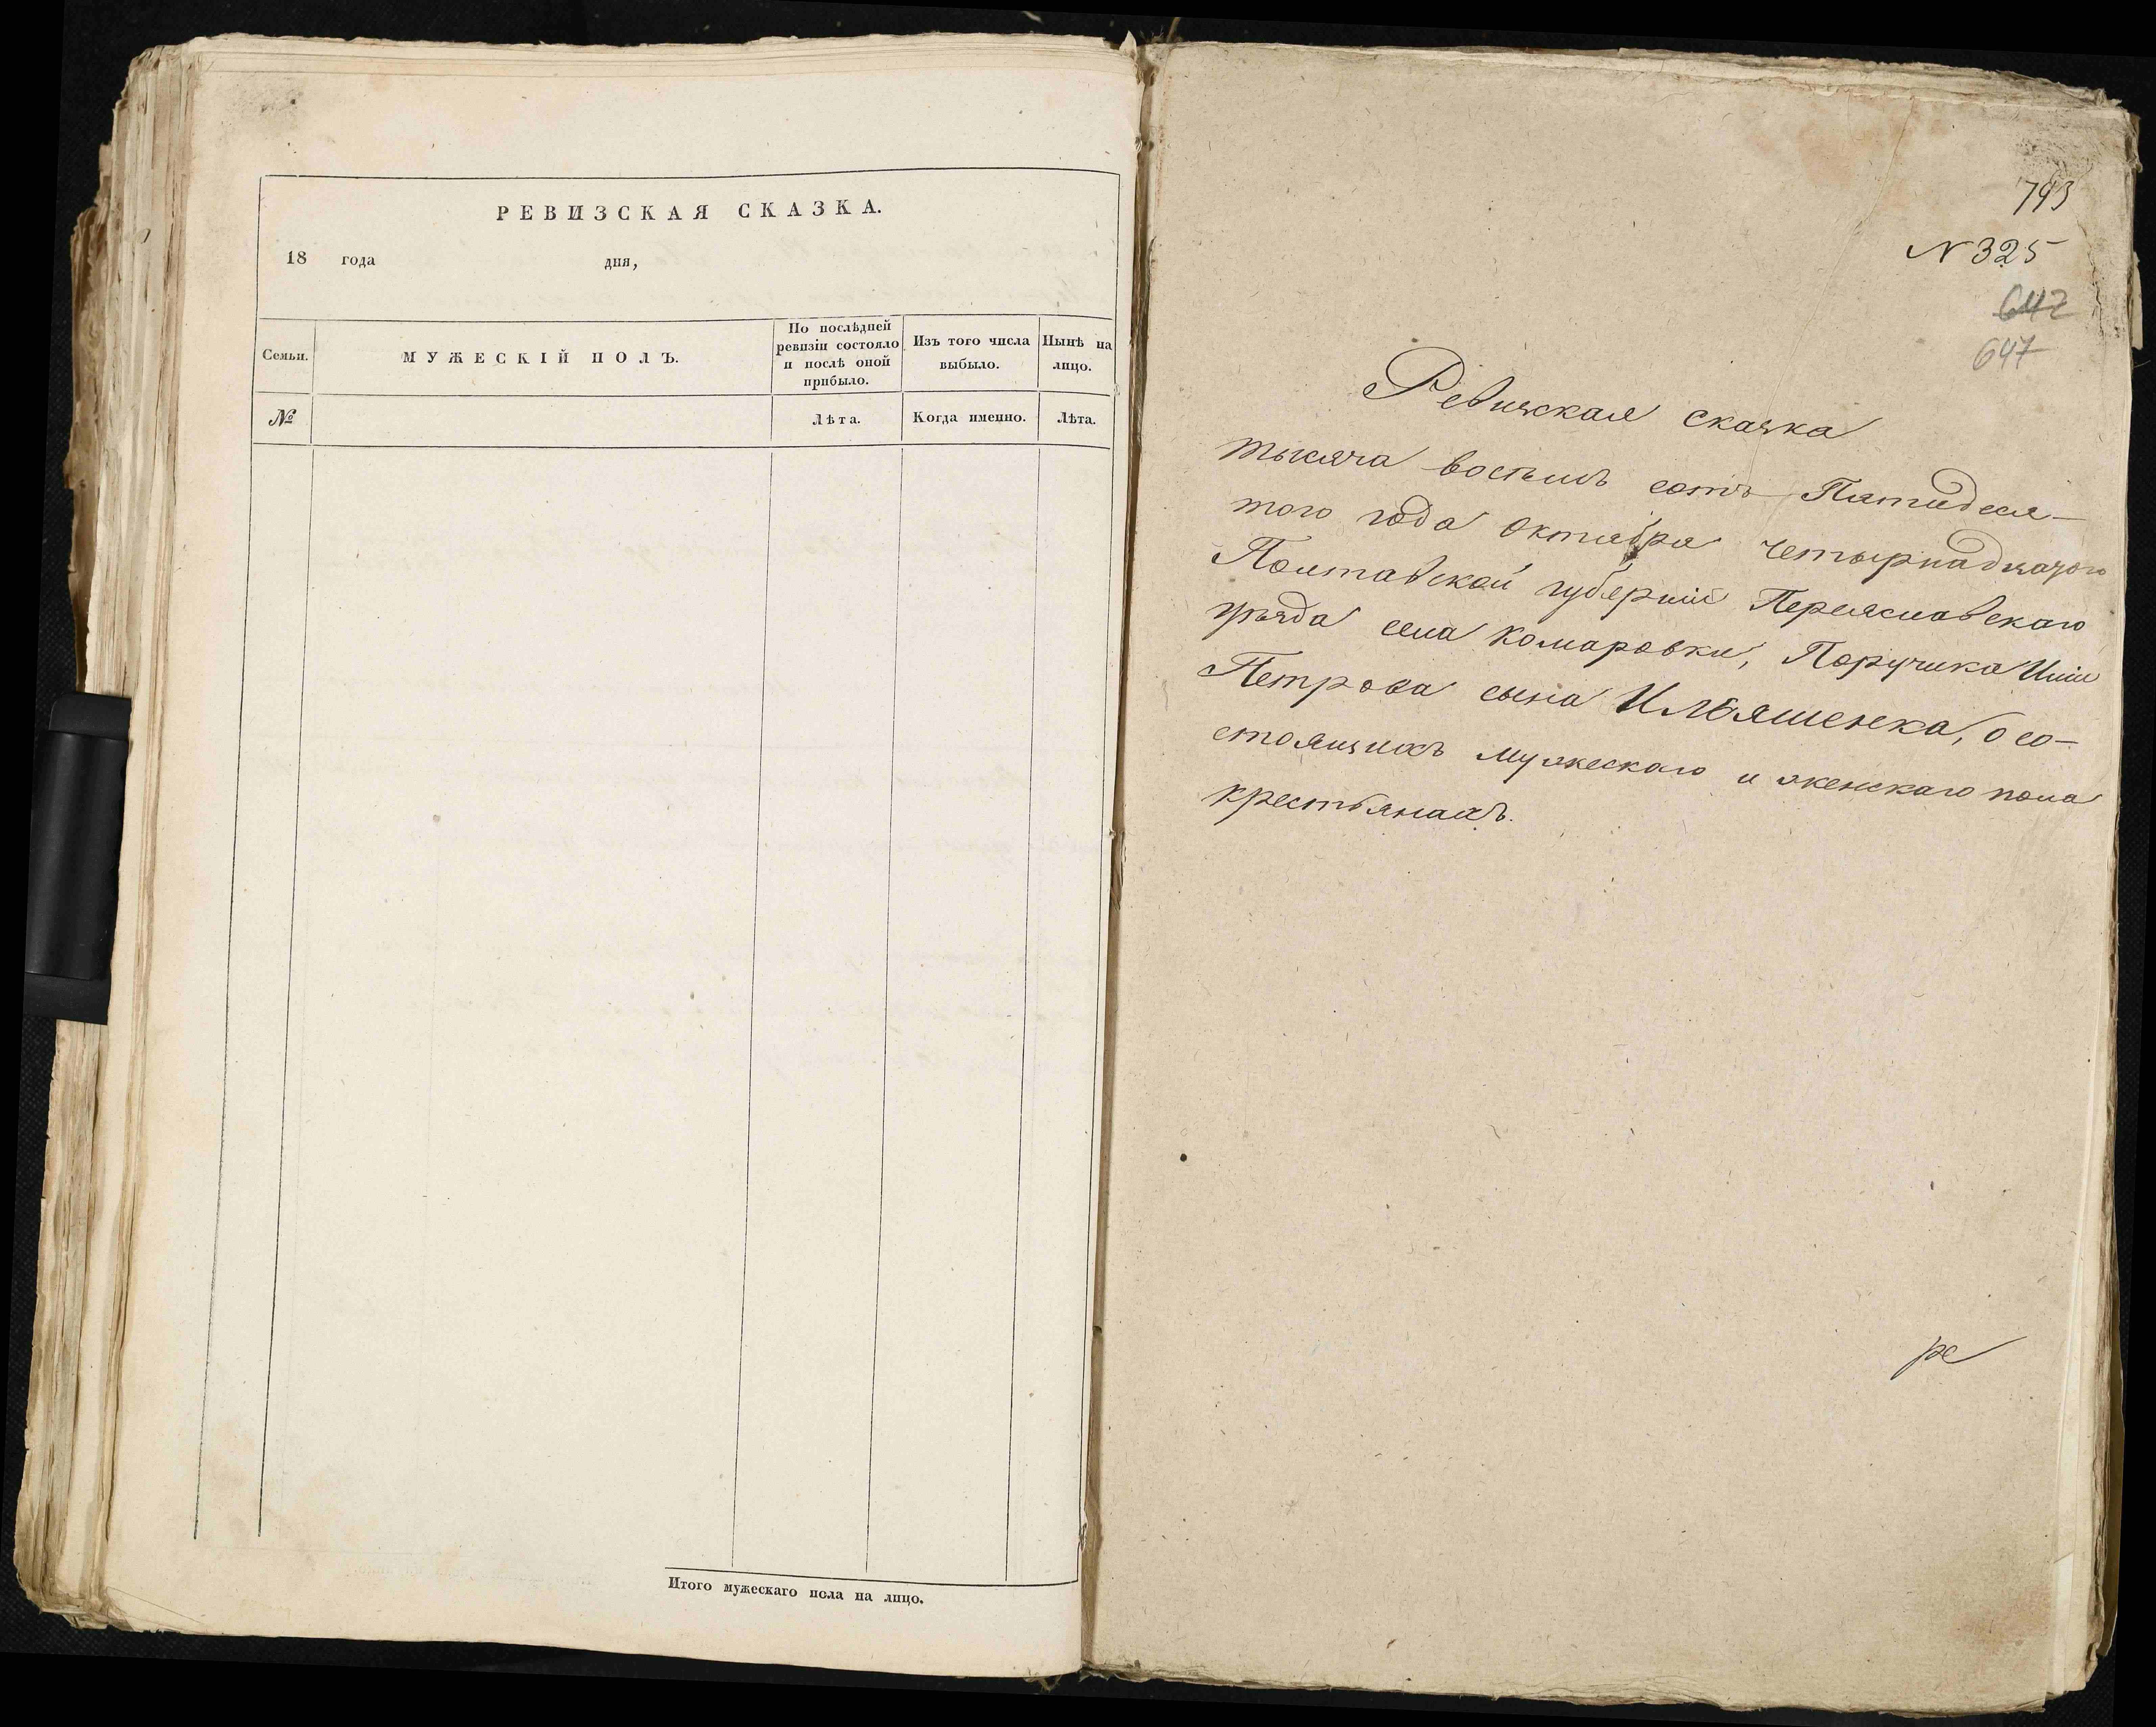 РЕВИЗСКАЯ СКАЗКА.
18 года дня,
Семьи.
МУЖЕСКІЙ ПОЛЪ.
По послѣдней
ревизіи состояло
и послѣ оной
прибыло.
Изъ того числа
выбыло.
Нынѣ на
лицо.
№
Лѣта.
Когда именно.
Лѣта.
Итого мужескаго пола на лицо.
793
N 325
642
647
Ревизская сказка
тысяча восемь сотъ Пятидеся-
того года Октября четырнадцатого
Полтавской губерніи Переяславскаго
уѣзда села Комаровки, Поручика Ильи
Петрова сына Ильяшенка, о со-
стоящихъ мужескаго и женскаго пола
крестьянахъ.